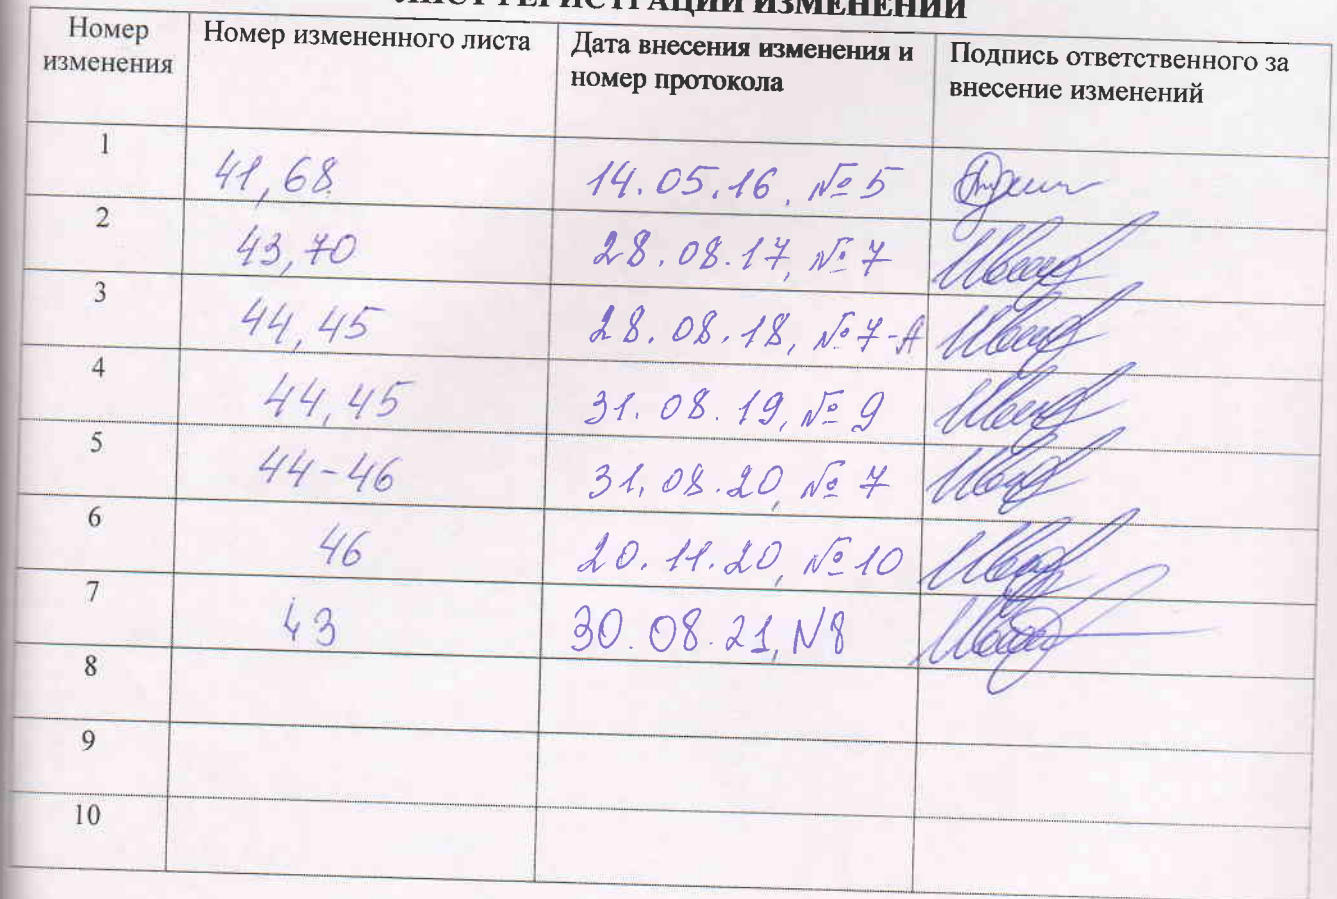 ЛИСТ РЕГИСТРАЦИИ ИЗМЕНЕНИЙ
Номер изменения | Номер измененного листа | Дата внесения изменения и номер протокола | Подпись ответственного за внесение изменений
1 | 41,68 | 14.05.16, № 5
2 | 43,70 | 28.08.17, № 7
3 | 44,45 | 28.08.18, № 7-А
4 | 44,45 | 31.08.19, № 9
5 | 44-46 | 31.08.20, № 7
6 | 46 | 20.11.20, № 10
7 | 43 | 30.08.21, N8
8
9
10